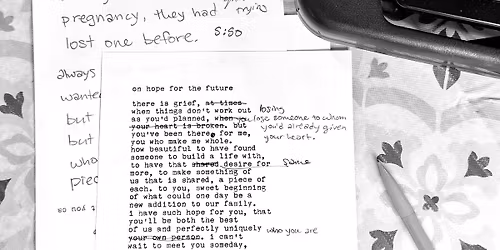 pregnancy, they had trying
lost one before. 5:50
always
wante
but
but
who
piec
so not
on hope for the future
there is grief, at times
when things don't work out losing
as you'd planned, when you lose someone to whom
your heart is broken. but you'd already given
you've been there for me, your heart.
you who make me whole.
how beautiful to have found
someone to build a life with,
to have that shared desire for same
more, to make something of
us that is shared, a piece of
each. to you, sweet beginning
of what could one day be a
new addition to our family.
i have such hope for you, that
you'll be both the best
of us and perfectly uniquely who you are
your own person. i can't
wait to meet you someday,